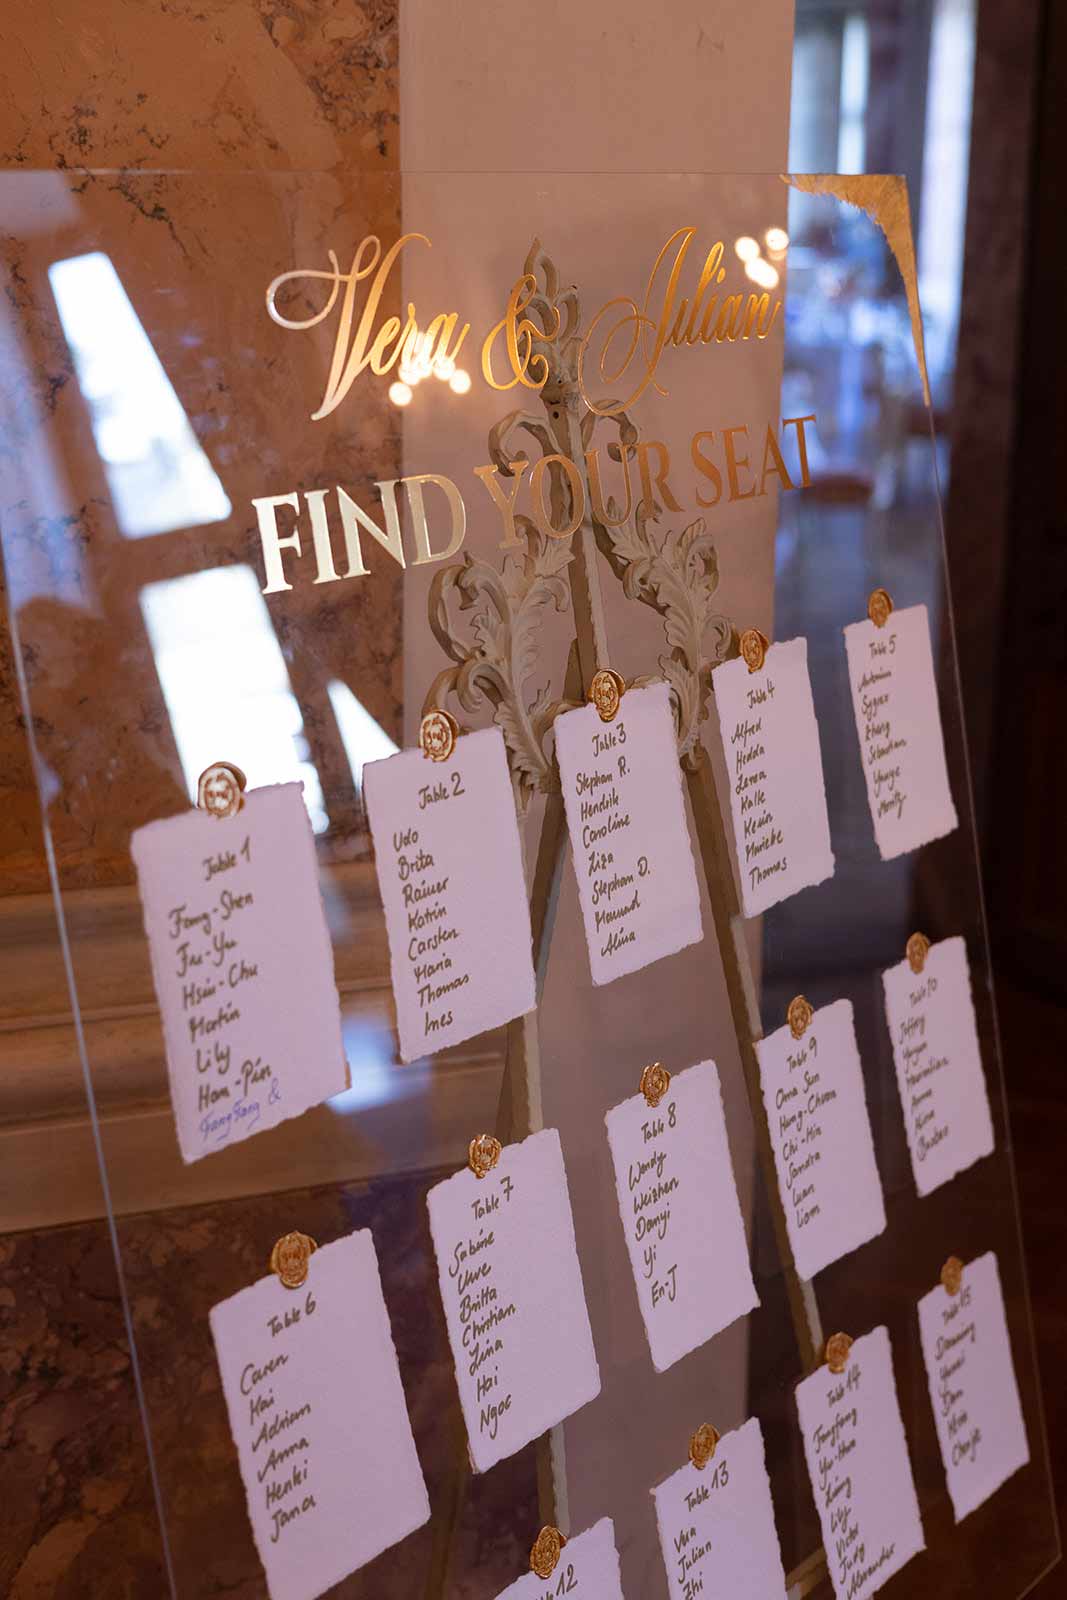 Vera & Julian
FIND YOUR SEAT
Table 1
Fang-Shen
Fu-Yu
Hsiu-Chu
Martin
Lily
Han-Pin
FangFang &
Table 2
Udo
Brita
Rainer
Katrin
Carsten
Maria
Thomas
Ines
Table 3
Stephan R.
Hendrik
Caroline
Liza
Stephan D.
Alina
Table 4
Alfred
Hedda
Kalle
Kevin
Marieke
Thomas
Table 5
Sebastian
Moritz
Table 6
Caren
Kai
Adrian
Anna
Henki
Jana
Table 7
Sabine
Uwe
Britta
Christian
Lina
Hai
Ngoc
Table 8
Wendy
Weizhen
Danyi
Yi
En-J
Table 9
Oma Sun
Hung-Chuan
Chi-Min
Sandra
Luan
Liam
Table 10
Jeffery
Maximilian
Table 12
Table 13
Vera
Julian
Zhi
Table 14
Fangfang
Yu-Hua
Lily
Victor
Judy
Alexander
Table 15